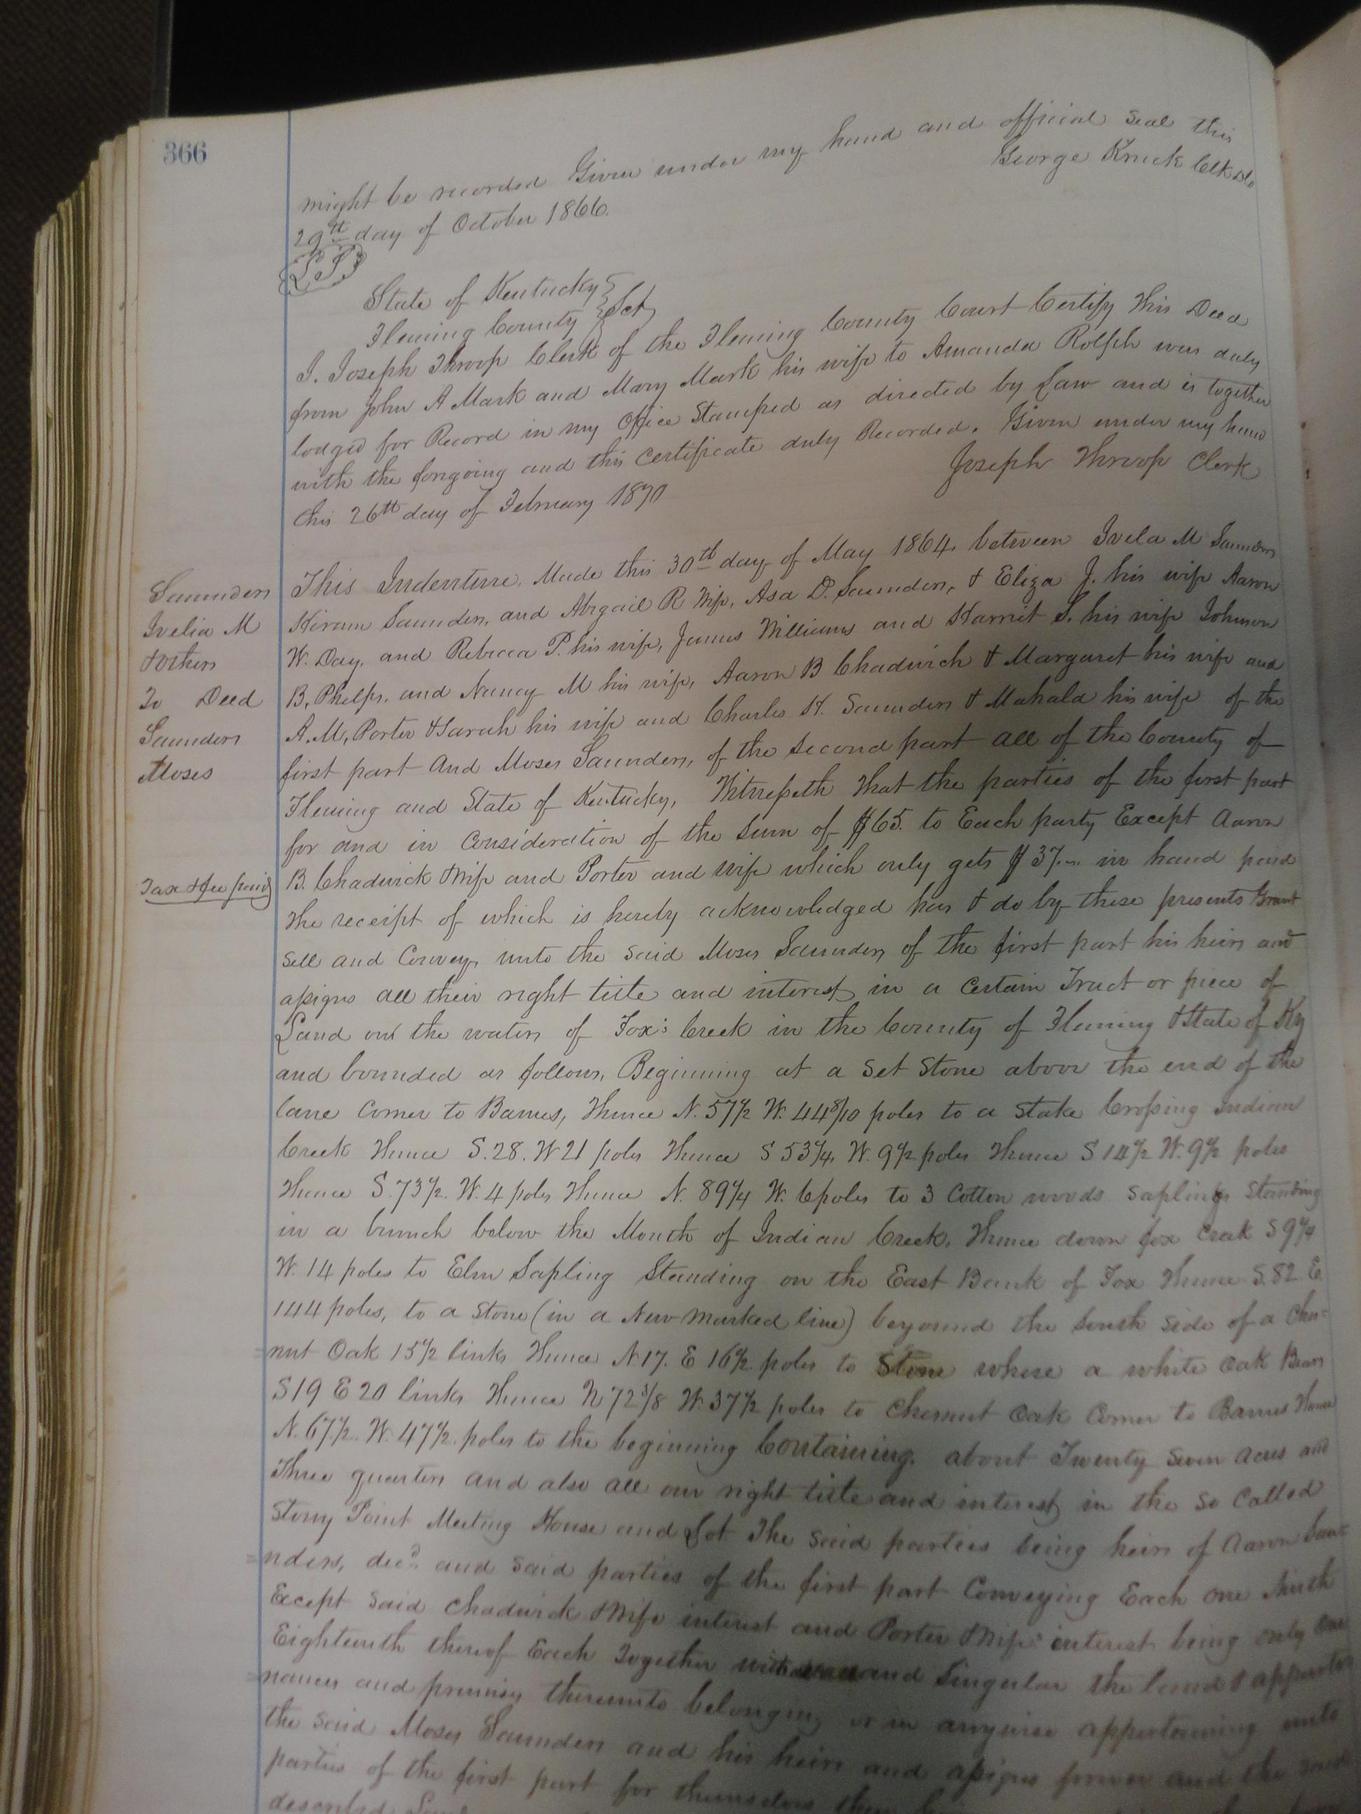 366
might be recorded Given under my hand and official seal this
29th day of October 1866. George Knick Clk
State of Kentucky }
Fleming County } Sct
I. Joseph Throop Clerk of the Fleming County Court Certify this Deed
from John A Mark and Mary Mark his wife to Amanda Rolph was duly
lodged for Record in my Office Stamped as directed by Law and is together
with the forgoing and this certificate duly Recorded. Given under my hand
this 26th day of February 1870 Joseph Throop Clerk
Saunders
Ivelia M
& others
To Deed
Saunders
Moses
Tax & fee paid
This Indenture. Made this 30th day of May 1864. between Ivela M Saunders
Hiram Saunders, and Abigail R Wife, Asa D. Saunders, & Eliza J. his wife Aaron
W. Day, and Rebecca P. his wife, James Williams and Harriet S. his wife Johnson
B. Phelps, and Nancy M his wife, Aaron B Chadwick & Margaret his wife and
A. M. Porter & Sarah his wife and Charles H. Saunders & Mahala his wife of the
first part And Moses Saunders, of the second part all of the County of
Fleming and State of Kentucky, Witnesseth that the parties of the first part
for and in consideration of the sum of $65. to Each party Except Aaron
B. Chadwick & Wife and Porter and wife which only gets $37 in hand paid
the receipt of which is hereby acknowledged has & do by these presents Grant
sell and Convey, unto the said Moses Saunders of the first part his heirs and
assigns all their right title and interest, in a certain Tract or piece of
Land on the waters of Fox's Creek in the County of Fleming & State of Ky
and bounded as follows, Beginning at a set stone above the end of the
lane corner to Barnes, Thence N. 57½ W. 44 8/10 poles to a stake Crossing Indian
Creek Thence S. 28. W 21 poles Thence S 53¾, W. 9½ poles Thence S 14½ W. 9½ poles
Thence S. 73½. W. 4 poles Thence N. 89¼ W. 6 poles to 3 Cotton woods saplings Standing
in a bunch below the Mouth of Indian Creek, Thence down fox creek S 9¼
W. 14 poles to Elm Sapling Standing on the East Bank of Fox Thence S. 82 E.
144 poles, to a stone (in a New marked line) beyound the south side of a Ches=
nut Oak 15½ links Thence N 17. E 16½ poles to Stone where a white oak Bears
S 19 E 20 links Thence N 72 3/8 W. 37½ poles to Chesnut Oak Corner to Barnes Thence
N. 67½. W. 47½. poles to the beginning Containing. about Twenty seven acres and
three quarters and also all our right title and interest, in the so called
Stony Point Meeting House and Lot The said parties being heirs of Aaron Sau=
nders, decd. and said parties of the first part Conveying Each one Ninth
Except said Chadwick & Wife interest and Porter & Wife interest being only one
Eighteenth thereof Each Together with and Singular the land & appurte
nances and premises thereunto belonging or in anywise appertaining unto
the said Moses Saunders and his heirs and assigns forever and the said
parties of the first part for themselves
described